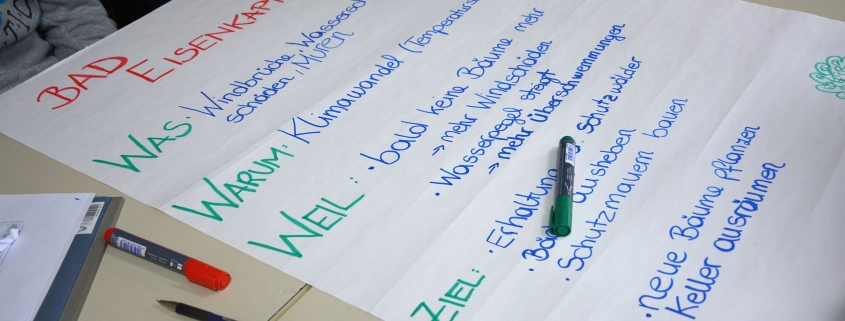 BAD EISENKAPP
WAS: Windbrüche, Wassersch
schäden, Muren
WARUM: Klimawandel (Temperaturs
WEIL: • bald keine Bäume mehr
→ mehr Windschäden
• Wasserpegel steigt
→ mehr Überschwemmungen
ZIEL: • Erhaltung Schutzwälder
• ausheben
• Schutzmauern bauen
• neue Bäume pflanzen
Keller ausräumen